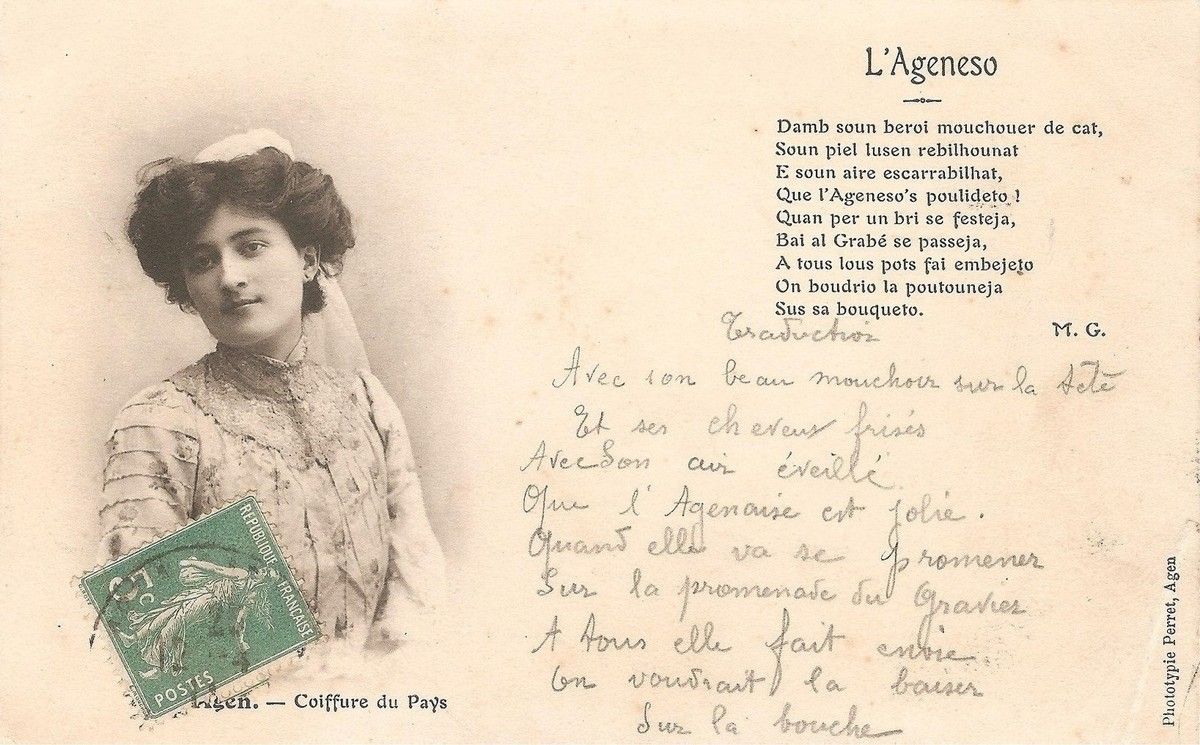 L'Ageneso
Damb soun beroi mouchouer de cat,
Soun piel lusen rebilhounat
E soun aire escarrabilhat,
Que l'Ageneso's poulideto !
Quan per un bri se festeja,
Bai al Grabé se passeja,
A tous lous pots fai embejeto
On boudrio la poutouneja
Sus sa bouqueto.
M. G.
Traduction
Avec son beau mouchoir sur la tête
Et ses cheveux frisés
Avec Son air éveillé
Que l'Agenaise est jolie.
Quand elle va se promener
Sur la promenade du Gravier
A tous elle fait envie
On voudrait la baiser
Sur la bouche
REPUBLIQUE FRANÇAISE
5c
POSTES
Agen. — Coiffure du Pays
Phototypie Perret, Agen